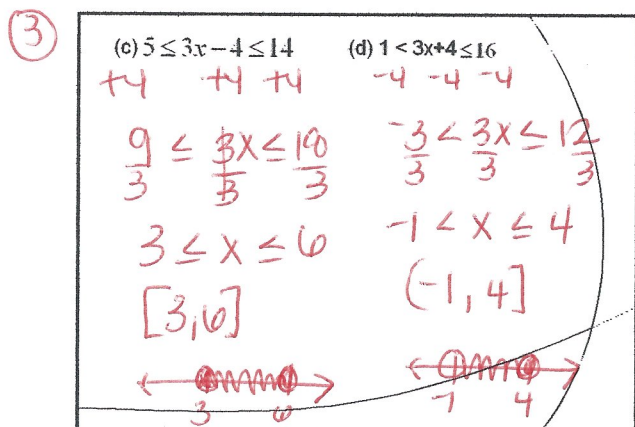 3
(c) 5 ≤ 3x − 4 ≤ 14
+4 +4 +4
9/3 ≤ 3x/3 ≤ 18/3
3 ≤ x ≤ 6
[3,6]
3 6
(d) 1 < 3x+4 ≤ 16
-4 -4 -4
-3/3 < 3x/3 ≤ 12/3
-1 < x ≤ 4
(-1, 4]
-1 4